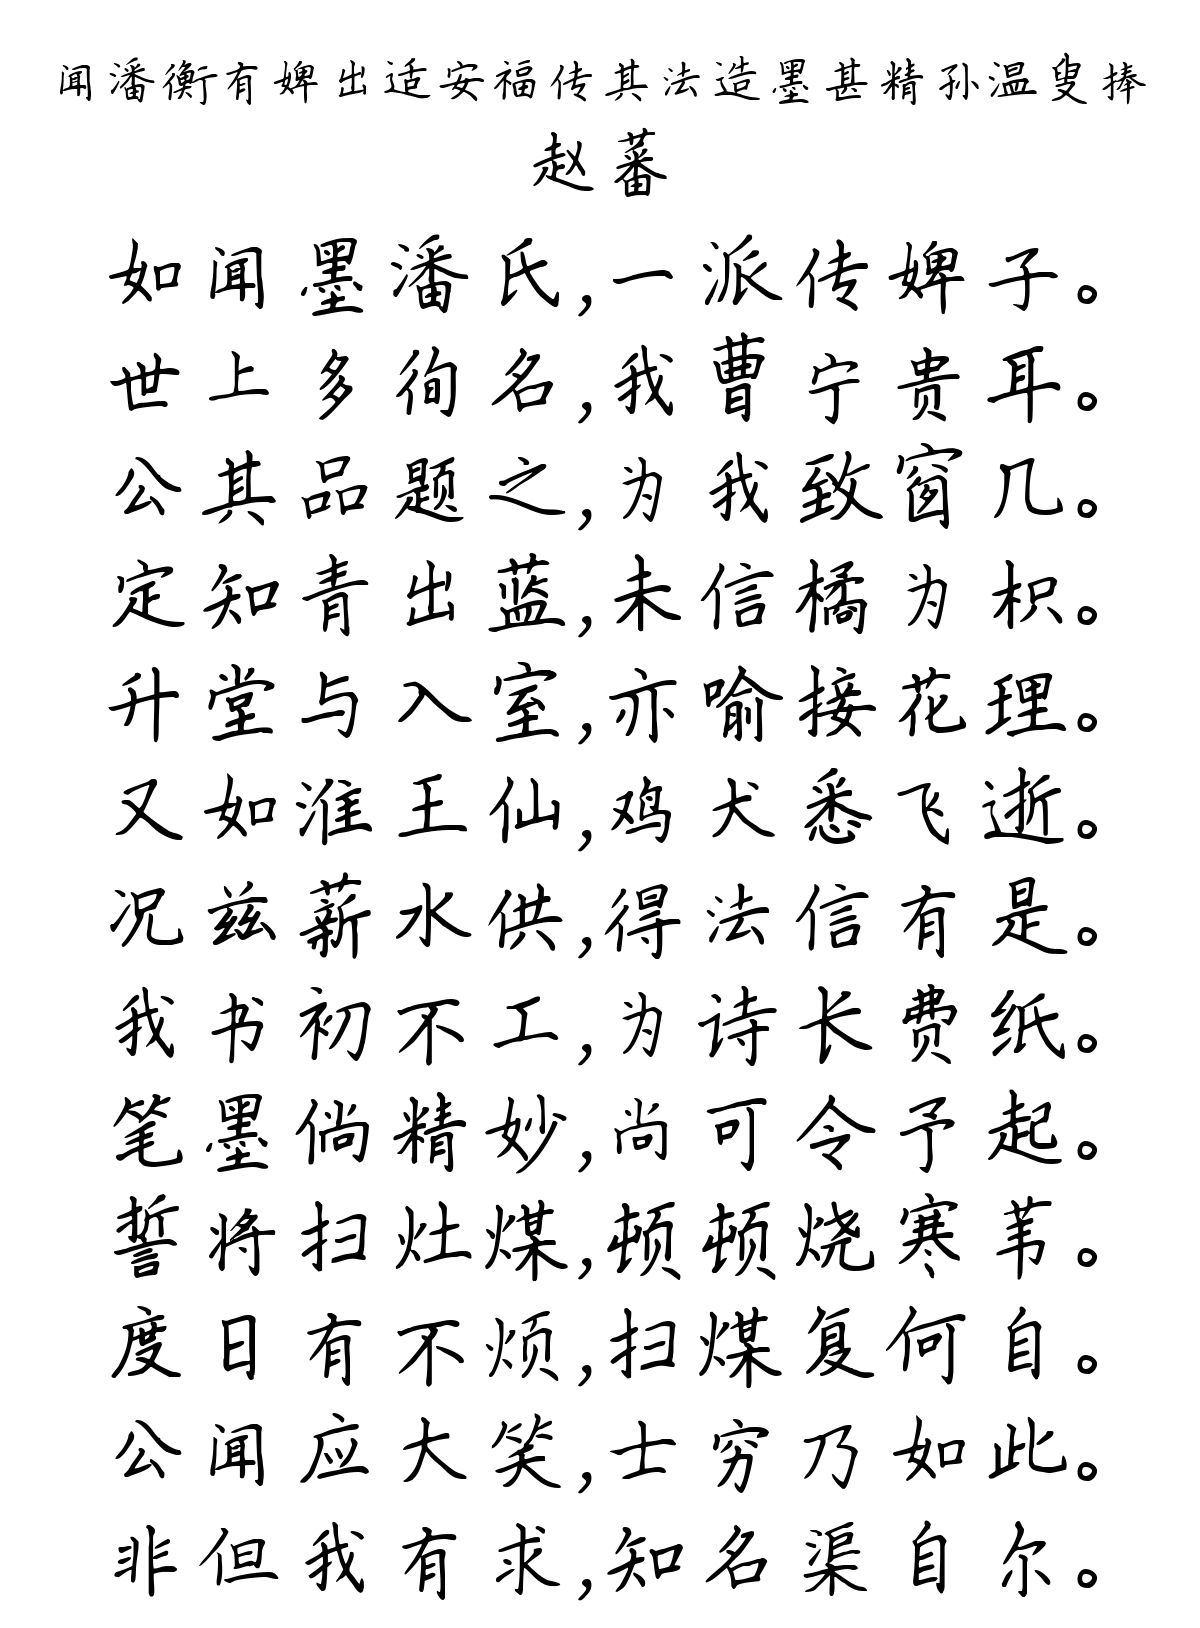 闻潘衡有婢出适安福传其法造墨甚精孙温叟捧
赵蕃
如闻墨潘氏,一派传婢子。
世上多徇名,我曹宁贵耳。
公其品题之,为我致窗几。
定知青出蓝,未信橘为枳。
升堂与入室,亦喻接花理。
又如淮王仙,鸡犬悉飞逝。
况兹薪水供,得法信有是。
我书初不工,为诗长费纸。
笔墨倘精妙,尚可令予起。
誓将扫灶煤,顿顿烧寒苇。
度日有不烦,扫煤复何自。
公闻应大笑,士穷乃如此。
非但我有求,知名渠自尔。